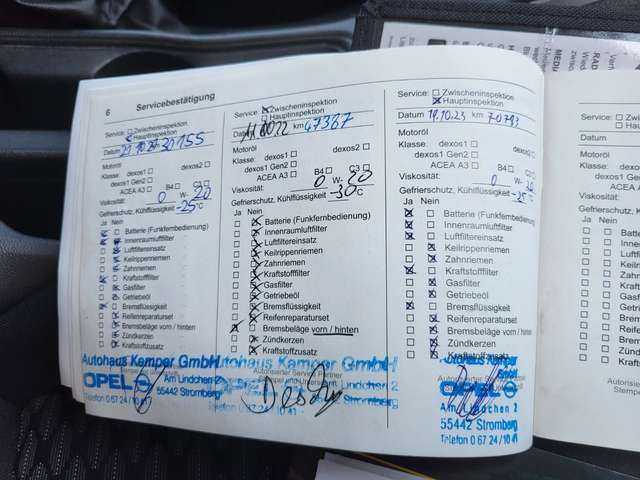 6 Servicebestätigung
Service: Zwischeninspektion
Hauptinspektion
Datum km 30155
Motoröl
Klasse: dexos1 dexos2
dexos1 Gen2
ACEA A3 B4 C3
Viskosität: 0 W- 20
Gefrierschutz, Kühlflüssigkeit -25°C
Ja Nein
Batterie (Funkfernbedienung)
Innenraumluftfilter
Luftfiltereinsatz
Keilrippenriemen
Zahnriemen
Kraftstofffilter
Gasfilter
Getriebeöl
Bremsflüssigkeit
Reifenreparaturset
Bremsbeläge vorn / hinten
Zündkerzen
Kraftstoffzusatz
Autohaus Kamper GmbH
OPEL Am Lindchen 2
55442 Stromberg
Telefon 0 67 24 / 10 41
Service: Zwischeninspektion
Hauptinspektion
Datum km 47367
Motoröl
Klasse: dexos1 dexos2
dexos1 Gen2
ACEA A3 B4 C3
Viskosität: 0 W- 20
Gefrierschutz, Kühlflüssigkeit -30°C
Ja Nein
Batterie (Funkfernbedienung)
Innenraumluftfilter
Luftfiltereinsatz
Keilrippenriemen
Zahnriemen
Kraftstofffilter
Gasfilter
Getriebeöl
Bremsflüssigkeit
Reifenreparaturset
Bremsbeläge vorn / hinten
Zündkerzen
Kraftstoffzusatz
Autohaus Kamper GmbH
Autorisierter Service Partner
OPEL Am Lindchen 2
55442 Stromberg
Telefon 0 67 24 / 10 41
Service: Zwischeninspektion
Hauptinspektion
Datum 19.10.23 km 70793
Motoröl
Klasse: dexos1 dexos2
dexos1 Gen2
ACEA A3 B4 C3
Viskosität: 0 W-
Gefrierschutz, Kühlflüssigkeit -25°C
Ja Nein
Batterie (Funkfernbedienung)
Innenraumluftfilter
Luftfiltereinsatz
Keilrippenriemen
Zahnriemen
Kraftstofffilter
Gasfilter
Getriebeöl
Bremsflüssigkeit
Reifenreparaturset
Bremsbeläge vorn / hinten
Zündkerzen
Kraftstoffzusatz
Autohaus Kamper
GmbH
OPEL
Am Lindchen 2
55442 Stromberg
Telefon 0 67 24 / 10 41
Service:
Datum
Motoröl
Klasse:
Viskosität:
Gefrierschutz
Ja Nein